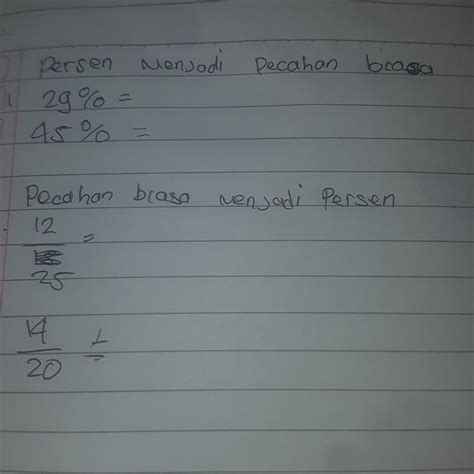 Persen Menjadi Pecahan biasa
29% =
45% =
Pecahan biasa Menjadi Persen
12
25
=
14
20
=